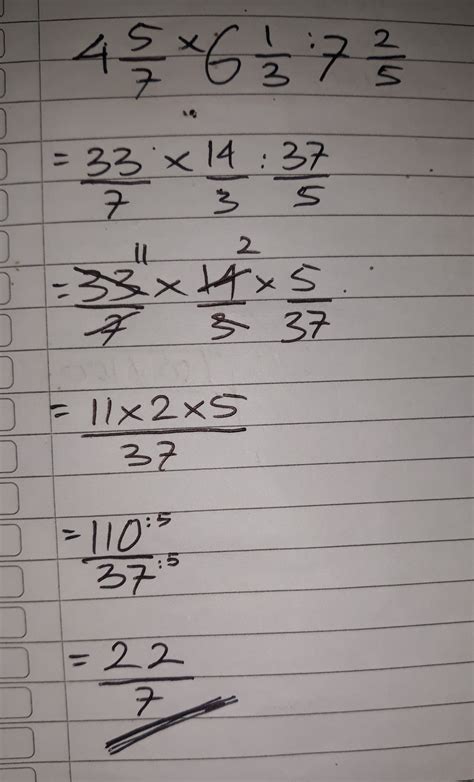 4 5/7 × 6 1/3 : 7 2/5
= 33/7 × 14/3 : 37/5
11 2
= 33/7 × 14/3 × 5/37
= 11×2×5/37
= 110:5/37:5
= 22/7